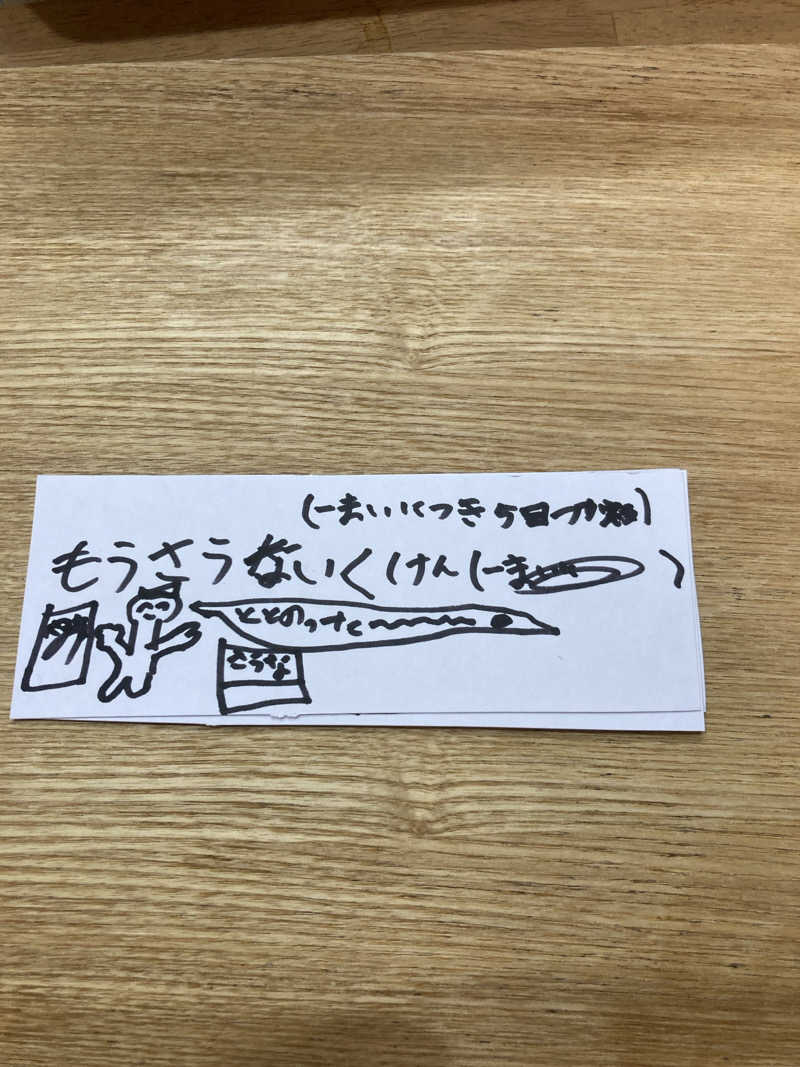 (一まいにつき5日つか
もうさうないくけん(一ま )
ととのったー〜〜〜
さうな